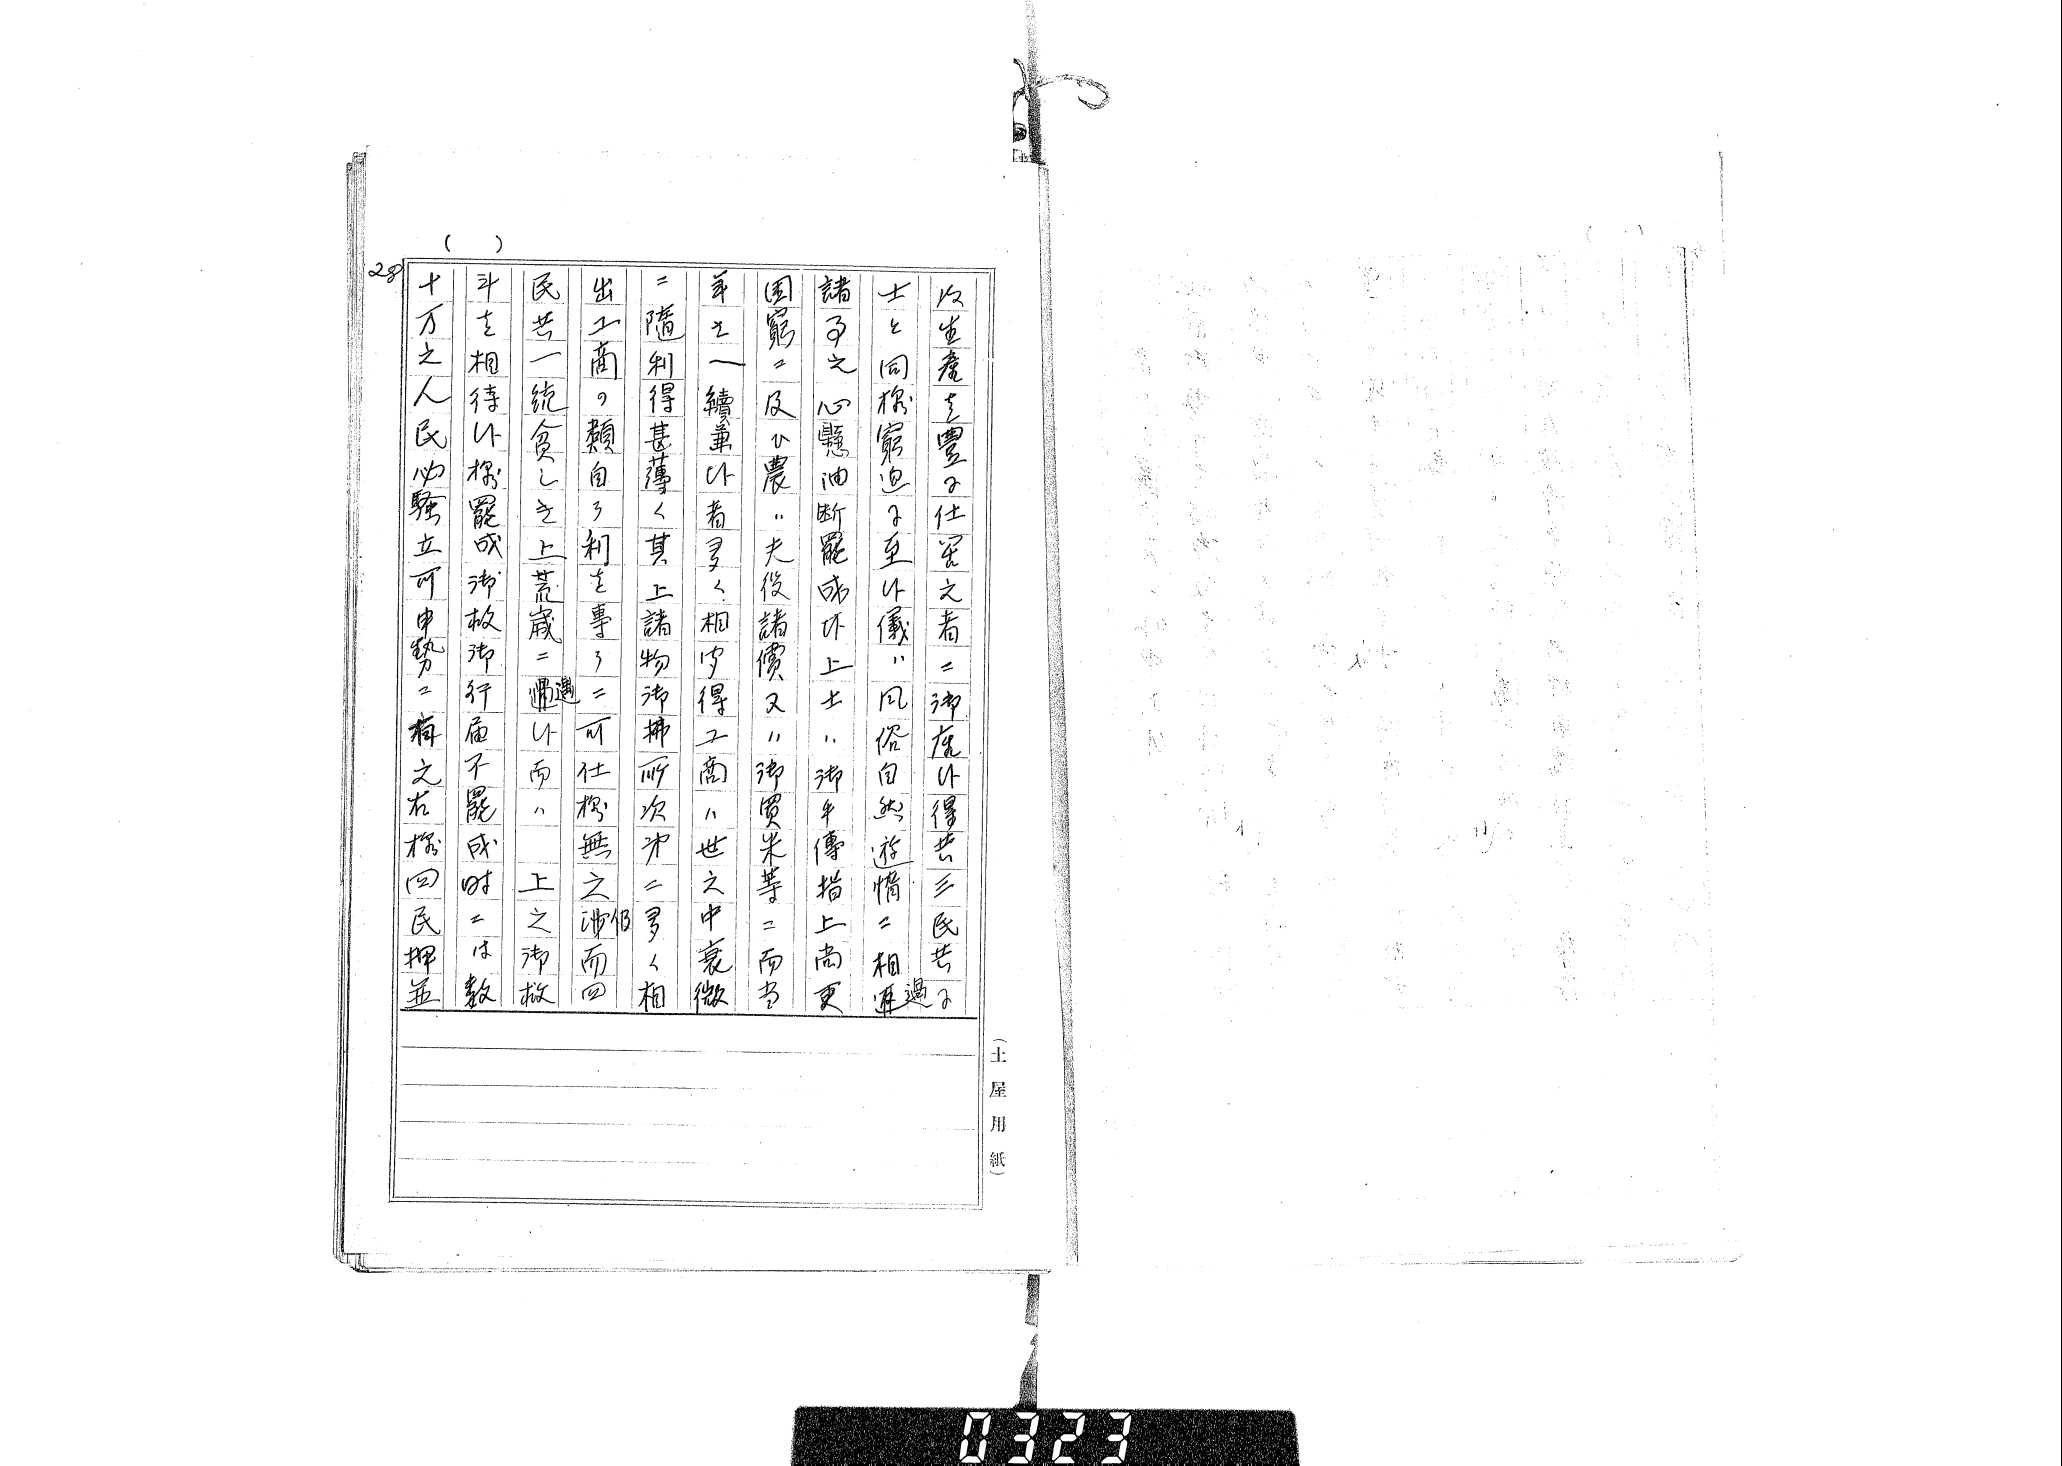 ( )
28
次生産を豊に仕置之者ニ御座候得共三民共に
士と同樣窮迫に至候儀ハ風俗自然遊惰ニ相過
諸事之心懸油断罷成候上士ハ御手傳指上尚更
困窮ニ及ひ農ハ夫役諸償又ハ御買米等ニ而当
年を一續兼候者多く相字得工商ハ世之中衰微
ニ隨利得甚薄く其上諸物御拂所次第ニ多く相
出工商の類自ら利を事らニ可仕樣無之仍而四
民共一統貧しき上荒歳ニ遇候而ハ 上之御救
斗を相待候樣罷成御救御行届不罷成時ニは数
十万之人民必騒立可申勢ニ有之右樣四民押並
(土屋用紙)
0323